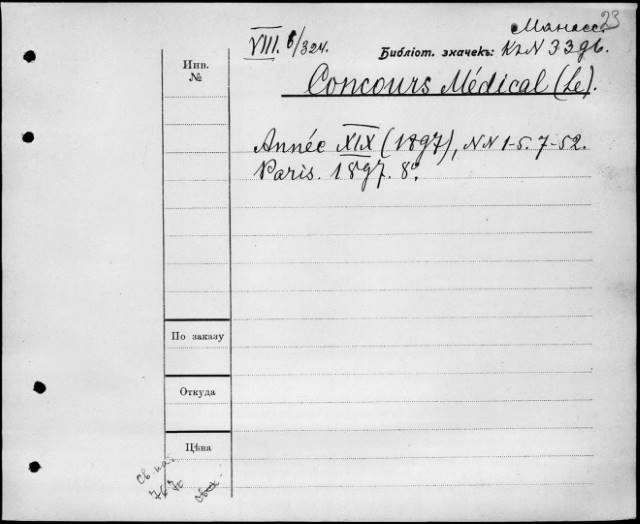 Манасс 23
VIII. 6/324. Библіот. значекъ: КлN 33дб.
Инв.
№
Concours Médical (Le).
Année XIX (1897), NN 1-5. 7-52.
Paris. 1897. 8°.
По заказу
Откуда
Цѣна